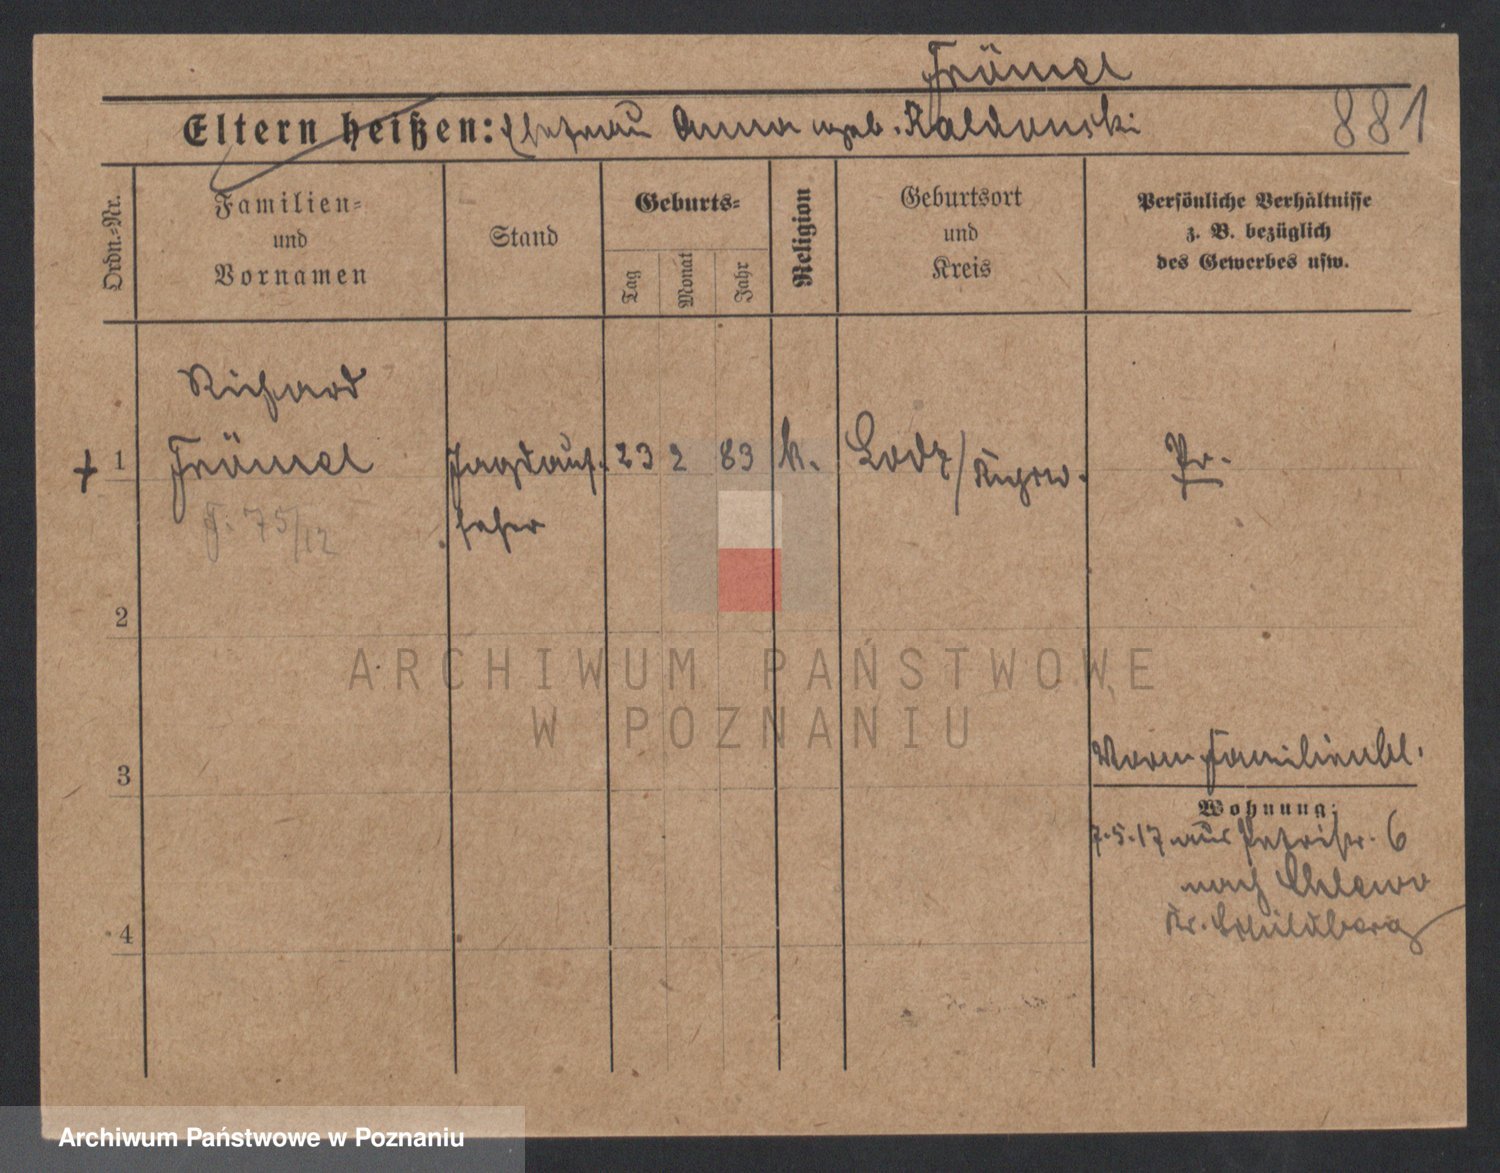 Frömel
Eltern heißen: Ehefrau Anna geb. Kaldonski
881
Ordn.=Nr.
Familien=
und
Vornamen
Stand
Geburts=
Tag
Monat
Jahr
Religion
Geburtsort
und
Kreis
Persönliche Verhältnisse
z. B. bezüglich
des Gewerbes usw.
Richard
+ 1 Frömel Jagdauf- 23 2 83 k. Lodz / Pr.
seher
F. 75/12
2
3
4
Familienbl.
Wohnung:
7.5.17 aus 6
nach Chlewo
Kr. Schildberg
ARCHIWUM PAŃSTWOWE
W POZNANIU
Archiwum Państwowe w Poznaniu